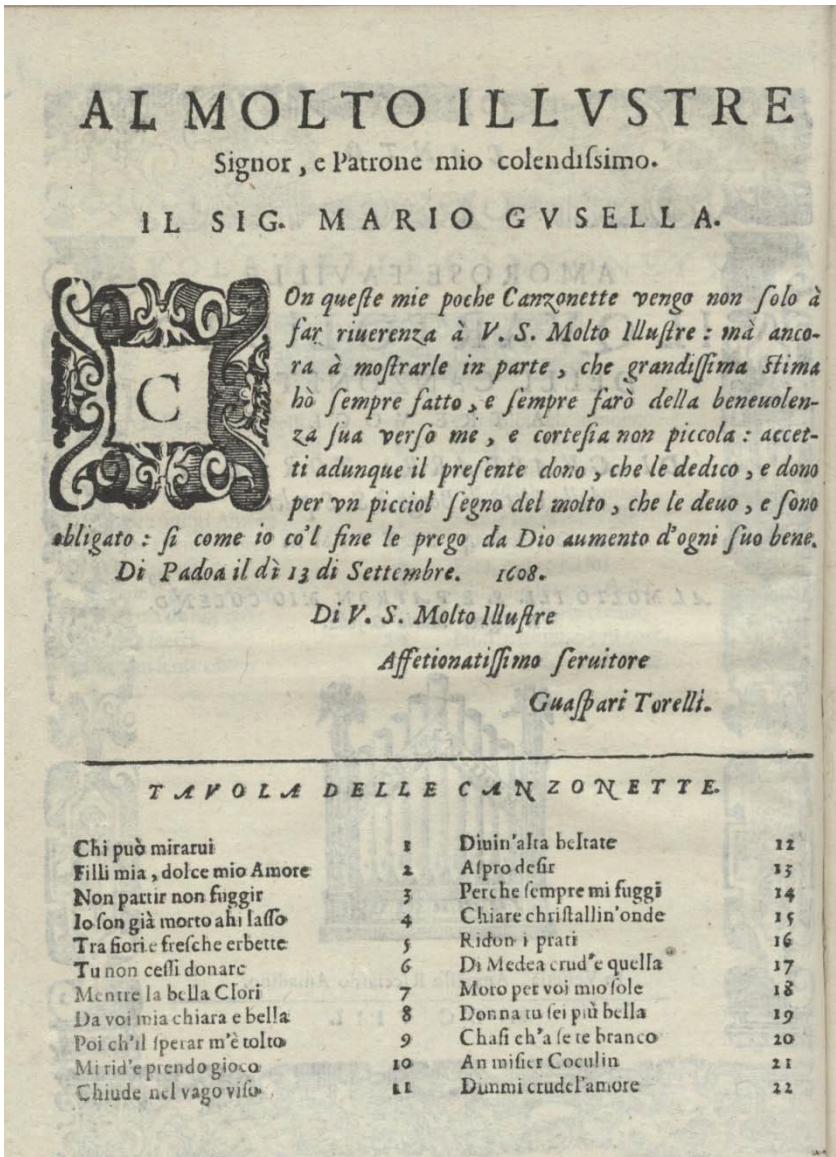 AL MOLTO ILLVSTRE
Signor, e Patrone mio colendiſsimo.
IL SIG. MARIO GVSELLA.
COn queſte mie poche Canzonette vengo non ſolo à
far riuerenza à V. S. Molto Illuſtre : mà anco-
ra à moſtrarle in parte, che grandiſſima ſtima
hò ſempre fatto, e ſempre farò della beneuolen-
za ſua verſo me, e corteſia non piccola : accet-
ti adunque il preſente dono, che le dedico, e dono
per vn picciol ſegno del molto, che le deuo, e ſono
obligato : ſi come io co'l fine le prego da Dio aumento d'ogni ſuo bene.
Di Padoa il dì 13 di Settembre. 1608.
Di V. S. Molto Illuſtre
Affetionatiſſimo ſeruitore
Guaſpari Torelli.
TAVOLA DELLE CANZONETTE.
Chi può mirarui 1
Filli mia, dolce mio Amore 2
Non partir non fuggir 3
Io ſon già morto ahi laſſo 4
Tra fiori e freſche erbette 5
Tu non ceſſi donare 6
Mentre la bella Clori 7
Da voi mia chiara e bella 8
Poi ch'il ſperar m'è tolto 9
Mi rid'e prendo gioco 10
Chiude nel vago viſo 11
Diuin'alta beltate 12
Aſpro deſir 13
Perche ſempre mi fuggi 14
Chiare chriſtallin'onde 15
Ridon i prati 16
Di Medea crud'e quella 17
Moro per voi mio ſole 18
Donna tu ſei più bella 19
Chaſi ch'a ſe te branco 20
An miſier Coculin 21
Dimmi crudel'amore 22